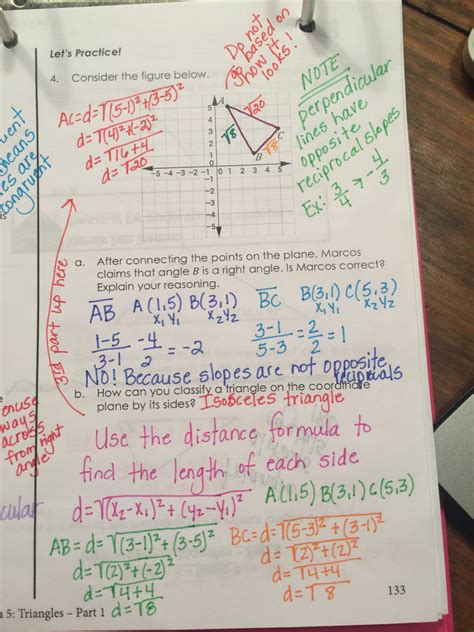 Let's Practice!
4. Consider the figure below.
Do not
go based on
how it
looks!
NOTE
perpendicular
lines have
opposite
reciprocal slopes
Ex: 3/4 → -4/3
AC=d=√(5-1)²+(3-5)²
d=√(4)²+(-2)²
d=√16+4
d=√20
A
B
C
√20
√8
√8
5
4
3
2
1
-5 -4 -3 -2 -1 0 1 2 3 4 5
-1
-2
-3
-4
-5
3rd part up here
a. After connecting the points on the plane, Marcos
claims that angle B is a right angle. Is Marcos correct?
Explain your reasoning.
AB A(1,5) B(3,1) BC B(3,1) C(5,3)
x₁ y₁ x₂ y₂ x₁ y₁ x₂ y₂
1-5/3-1 -4/2 = -2 3-1/5-3 = 2/2 = 1
NO! Because slopes are not opposite
reciprocals
b. How can you classify a triangle on the coordinate
plane by its sides? Isosceles triangle
Use the distance formula to
find the length of each side
d=√(x₂-x₁)²+(y₂-y₁)² A(1,5) B(3,1) C(5,3)
AB=d=√(3-1)²+(3-5)²
d=√(2)²+(-2)²
d=√4+4
d=√8
BC=d=√(5-3)²+(3-1)²
d=√(2)²+(2)²
d=√4+4
d=√8
133
5: Triangles – Part 1
means
es are
congruent
ways
across
from right
angle
cular